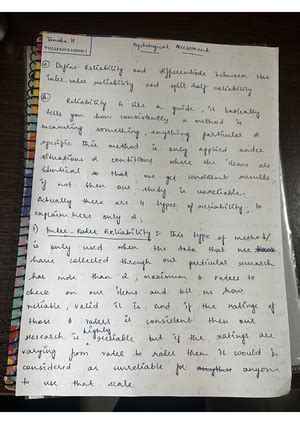 Psychological Assessment
Define Reliability and differentiate between the
inter rater reliability and split half reliability
Reliability is like a guide, it basically
tells you how consistently a method is
measuring something, anything particular &
specific this method is only applied under
situations & conditions where the items are
identical so that we get constant results,
if not then our study is unreliable.
Actually there are 4 types of reliability, to
explain here only 2,
1) Inter-Rater Reliability: this type of method
is only used when the data that we
have collected through our particular research
has more than 2, maximum 6 raters to
check on our items and tell us how
reliable, valid it is, and if the ratings of
those 6 raters is consistent then our
research is highly reliable but if the ratings are
varying from rater to rater then it would be
considered as unreliable for anyone
to use that scale.